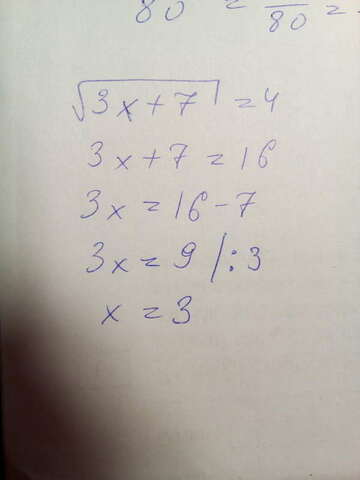 80 = /80 =
√3x+7 = 4
3x+7 = 16
3x = 16-7
3x = 9 /:3
x = 3